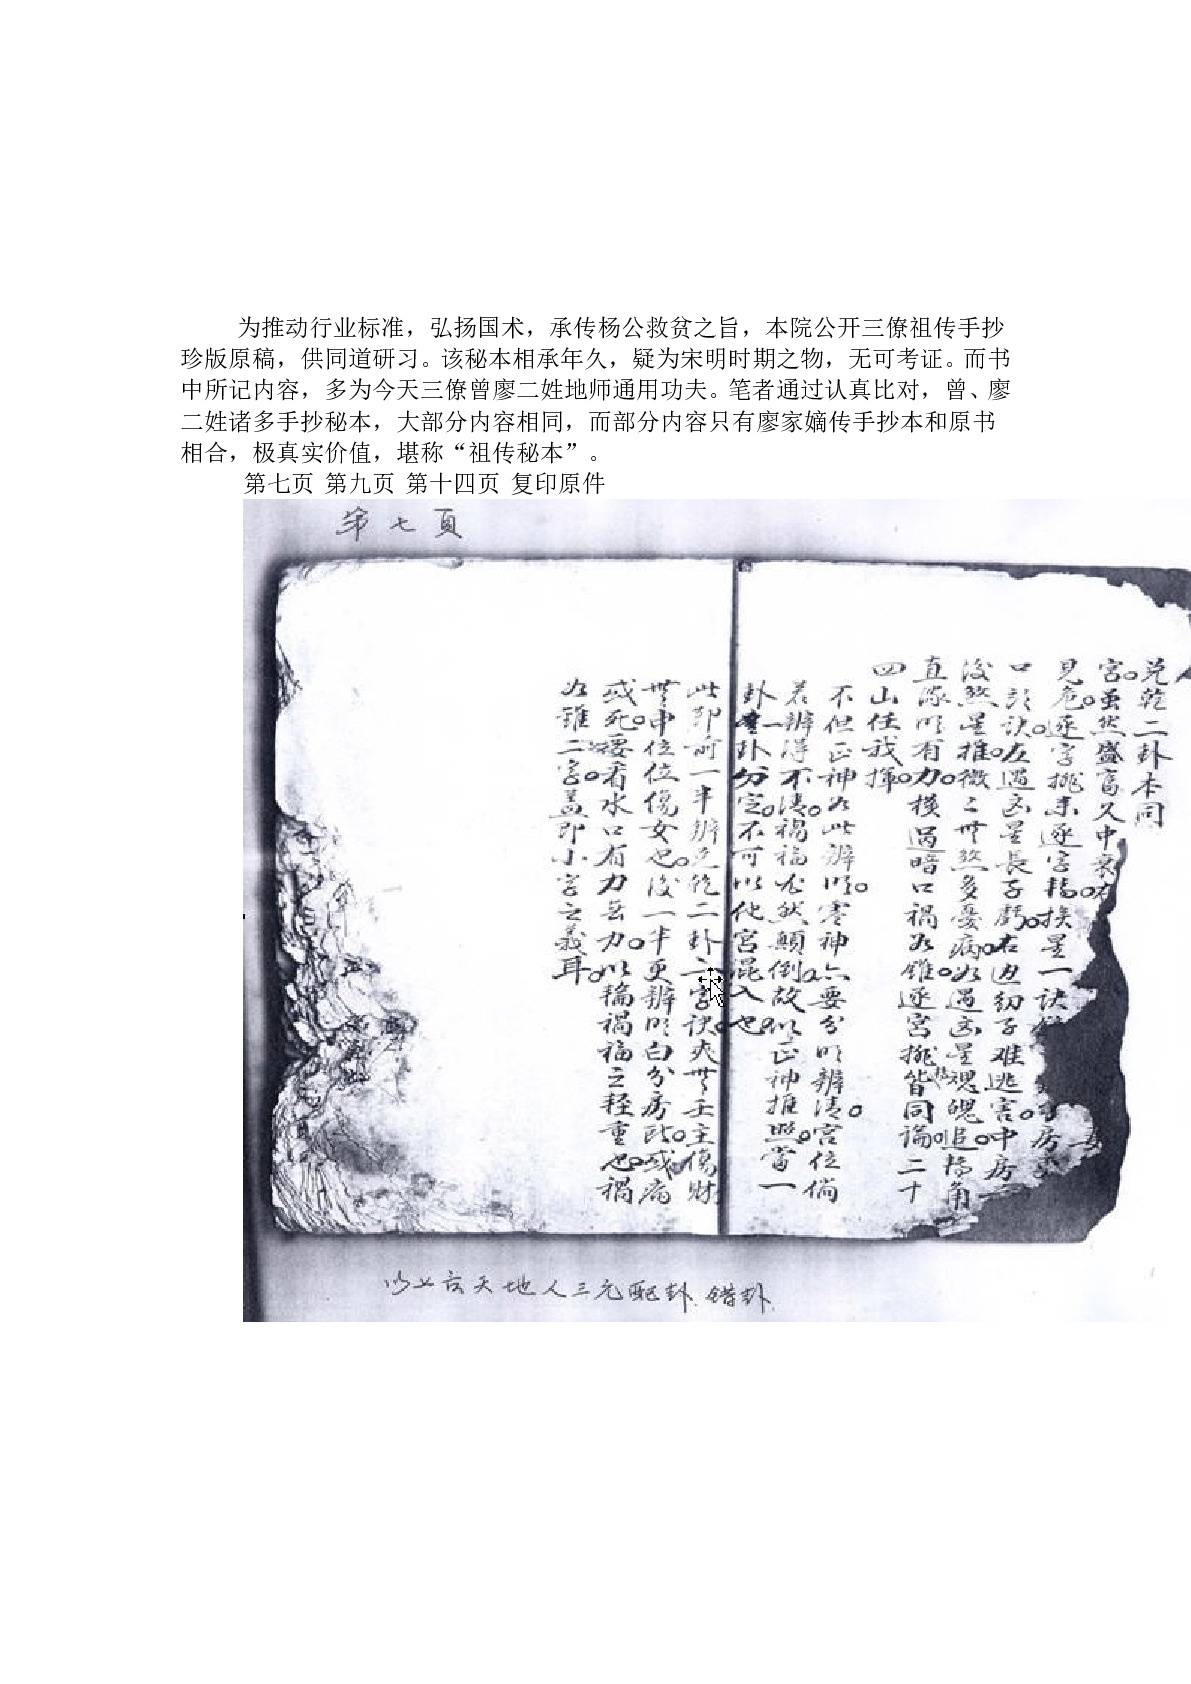 为推动行业标准，弘扬国术，承传杨公救贫之旨，本院公开三僚祖传手抄
珍版原稿，供同道研习。该秘本相承年久，疑为宋明时期之物，无可考证。而书
中所记内容，多为今天三僚曾廖二姓地师通用功夫。笔者通过认真比对，曾、廖
二姓诸多手抄秘本，大部分内容相同，而部分内容只有廖家嫡传手抄本和原书
相合，极真实价值，堪称“祖传秘本”。
第七页 第九页 第十四页 复印原件
第七頁
兑乾二卦本同
宮。虽然盛富又中衰
見危。逐字挑来逐字搖。挨星一訣
口訣。左遇凶星長子。右边幼子难逃害。中房
後煞星推微二世煞多憂病。如遇凶星魂魄追。橋角
直深明有力。橫過暗口禍如雖逐宮挑皆同論。二十
四山任我揮。
不但正神如此辨明。零神亦要分明辨清。宮位倘
若辨得不清。禍福必然顛倒。故以正神推照。當一
卦一卦分定。不可以他宮混入也。
此即前一半辨兑乾二卦之字訣爻世壬主傷財
世申位位傷女也。後一半更辨明白分房跃。或病
或死。要看水口有力無力。以輪禍福之輕重也。禍
如雖二字。蓋即小字之義耳。
以上言天地人三元配卦.錯卦.